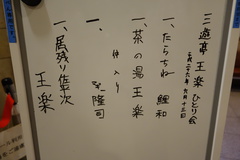 三遊亭 王楽 ひとり会
平成二十六年 九月十三日
一、たらちね 鯉和
一、茶の湯 王楽
仲入り
一、 隆司
一、居残り佐平次
王楽